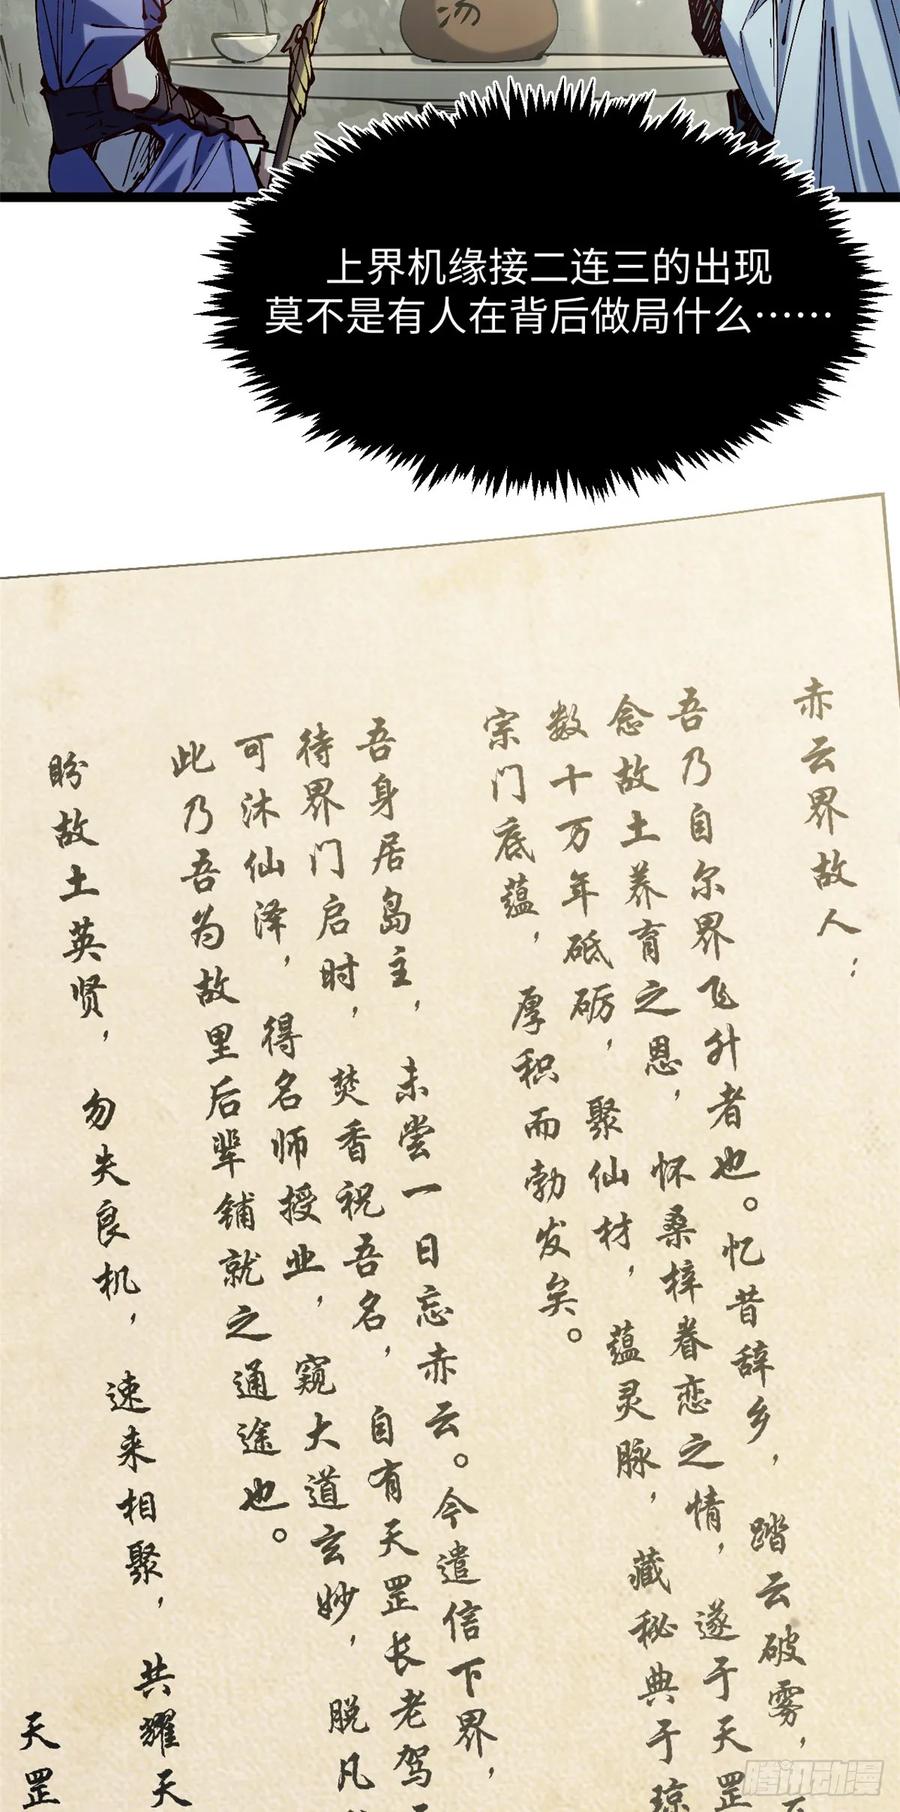 汤
上界机缘接二连三的出现
莫不是有人在背后做局什么……
赤云界故人：
吾乃自尔界飞升者也。忆昔辞乡，踏云破雾，
念故土养育之恩，怀桑梓眷恋之情，遂于天罡
数十万年砥砺，聚仙材，蕴灵脉，藏秘典于琼
宗门底蕴，厚积而勃发矣。
吾身居岛主，未尝一日忘赤云。今遣信下界，
待界门启时，焚香祝吾名，自有天罡长老驾
可沐仙泽，得名师授业，窥大道玄妙，脱凡
此乃吾为故里后辈铺就之通途也。
盼故土英贤，勿失良机，速来相聚，共耀天
天罡
腾讯动漫